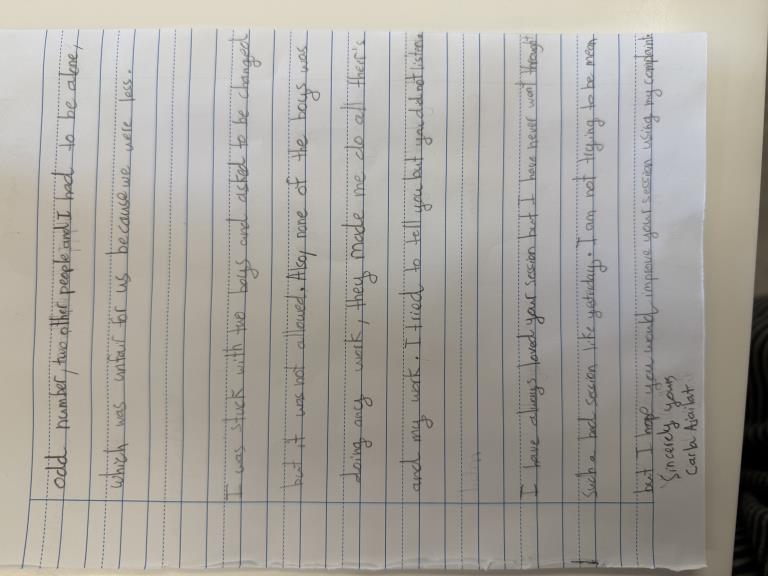 odd number, two other people and I had to be alone,
which was unfair for us because we were less.
I was stuck with two boys and asked to be changed
but it was not allowed. Also, none of the boys was
doing any work, they made me do all their's
and my work. I tried to tell you but you did not listen.
I have always loved your session but I have never went through
such a bad session like yesterday. I am not trying to be mean
but I hope you would improve your session using my complaint
Sincerely yours
Carla